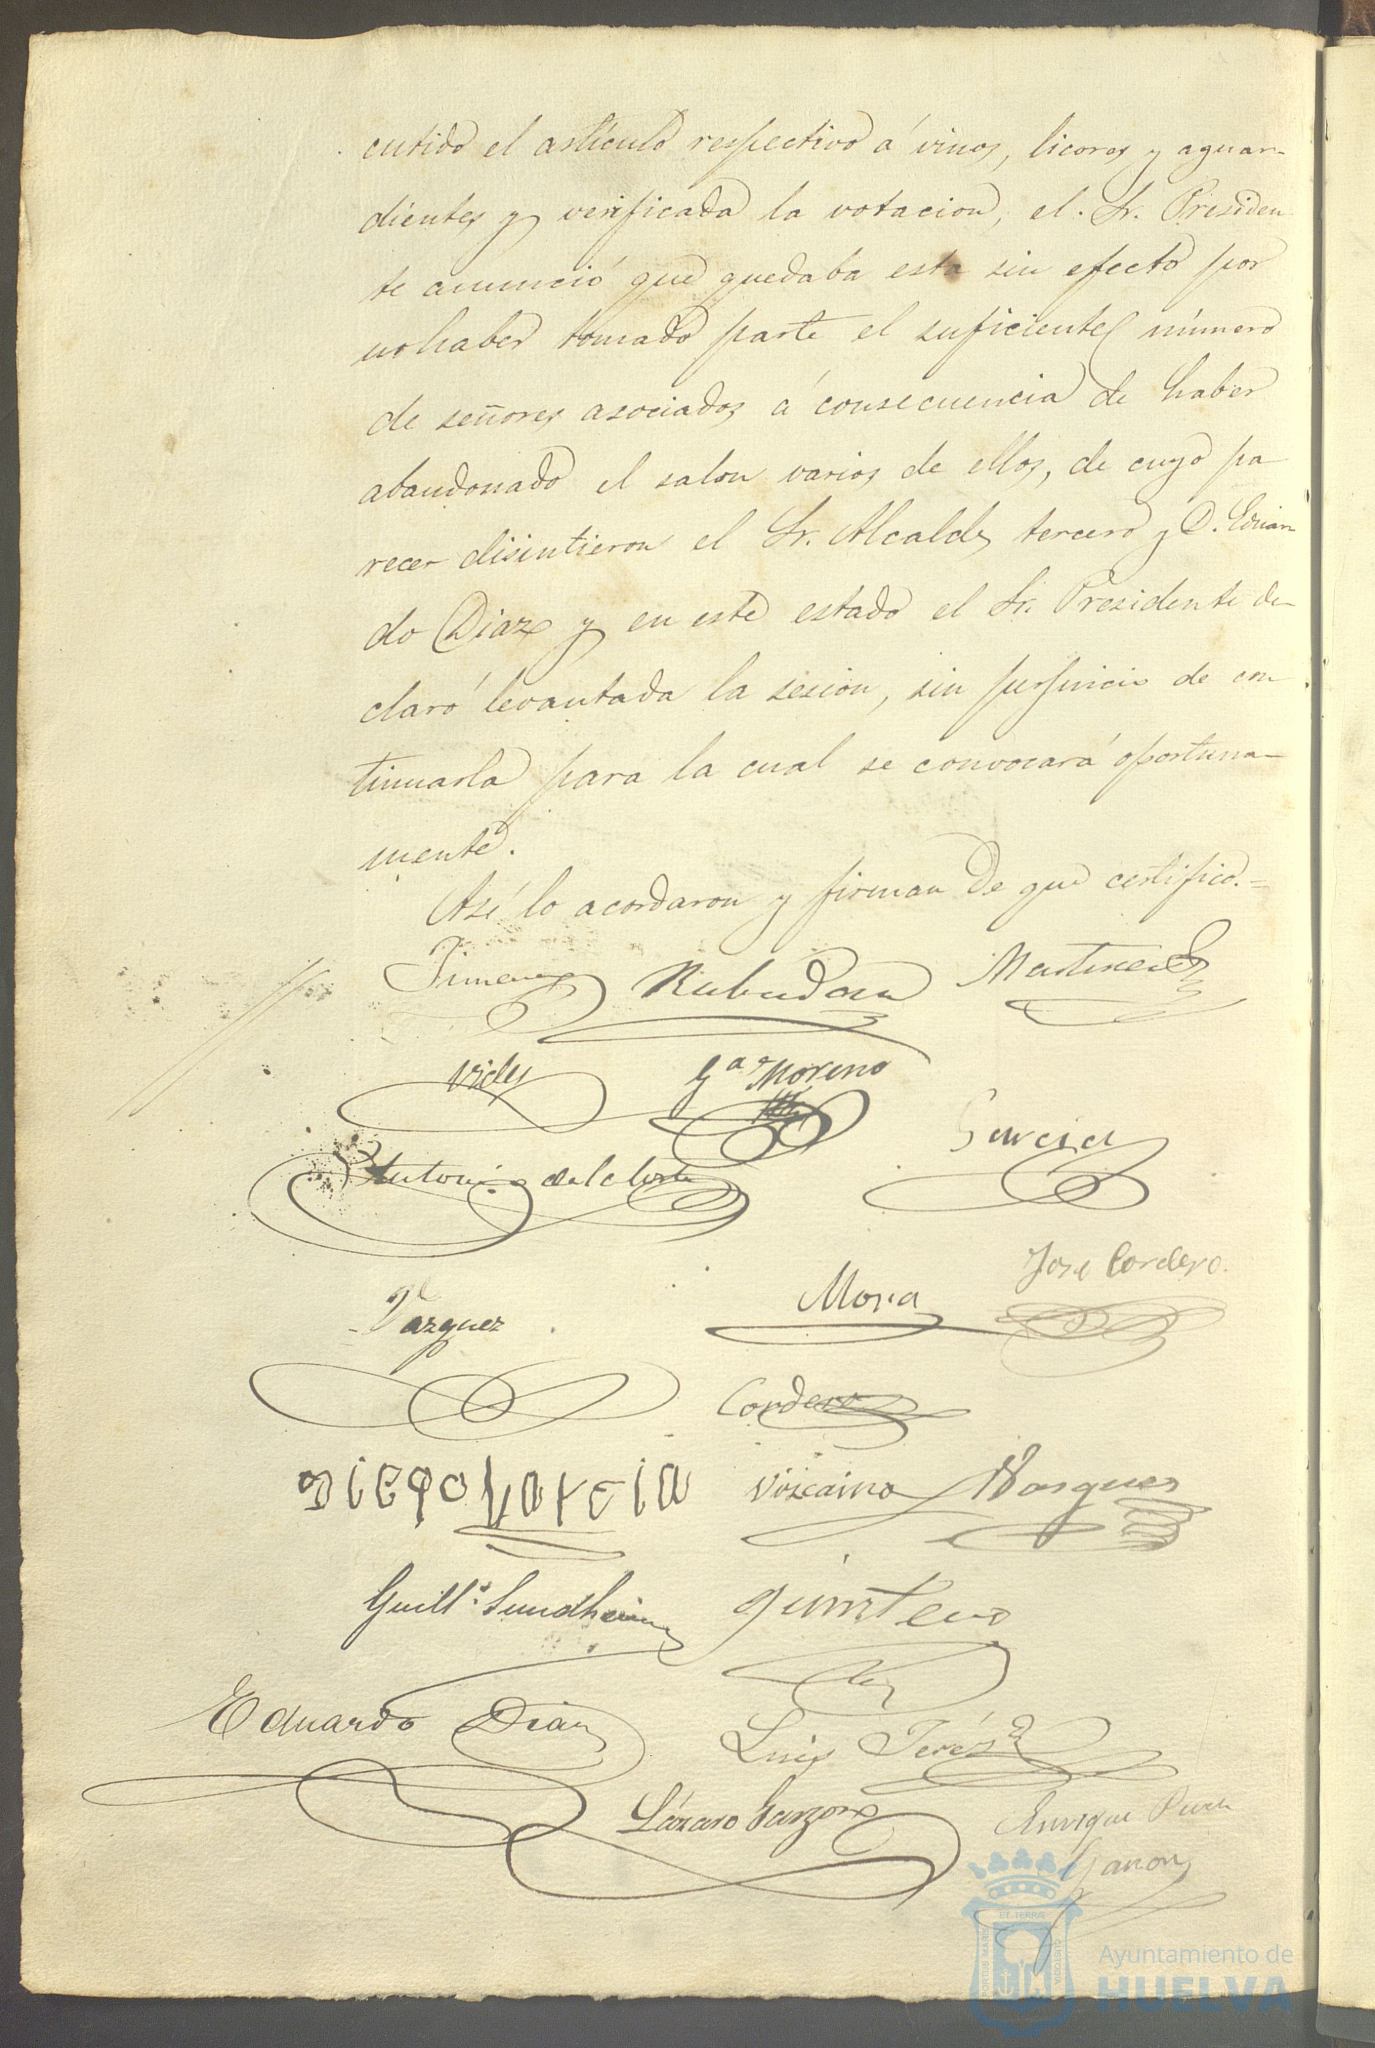 cutido el artículo respectivo á vinos, licores y aguar-
dientes y verificada la votacion, el Sr. Presiden
te anunció que quedaba esta sin efecto por
no haber tomado parte el suficiente número
de señores asociados á consecuencia de haber
abandonado el salon varios de ellos, de cuyo pa
recer disintieron el Sr. Alcalde tercero y D. Eduar
do Diaz y en este estado el Sr. Presidente de-
claró levantada la sesion, sin perjuicio de con
tinuarla para la cual se convocará oportuna-
mente.
Asi lo acordaron y firman de que certifico.=
Jimenez Martinez
Vides Ga. Moreno
Garcia
Antonio de la Corte
Jose Cordero.
Vazquez Mora
Cordero
Diego Garcia Vizcaino Vazquez
Guillo. Sundheim Quintero
Eduardo Diaz Luis Jerez
Lázaro Garzon Enrique
ET TERRÆ
PORTUS MARIS
CUSTODIA
Ayuntamiento de
HUELVA